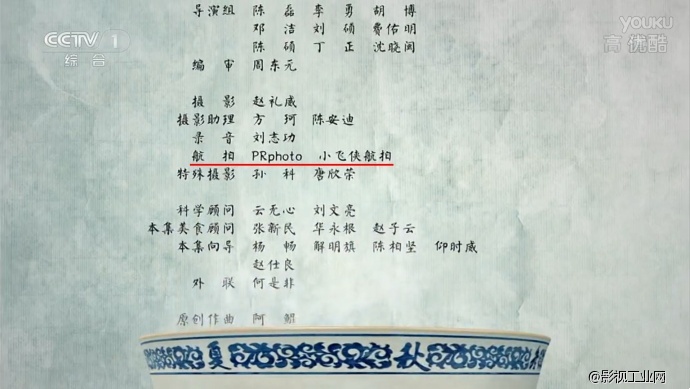 CCTV 1
综合
YOUKU
高 优酷
导演组 陈磊 李勇 胡博
邓洁 刘硕 费佑明
陈硕 丁正 沈晓闽
编审 周东元
摄影 赵礼威
摄影助理 方珂 陈安迪
录音 刘志功
航拍 PRphoto 小飞侠航拍
特殊摄影 孙科 唐欣荣
科学顾问 云无心 刘文亮
本集美食顾问 张新民 华永根 赵子云
本集向导 杨畅 解明旗 陈柏坚 仰时威
赵仕良
外联 何是非
原创作曲 阿鲲
夏 秋
@影视工业网